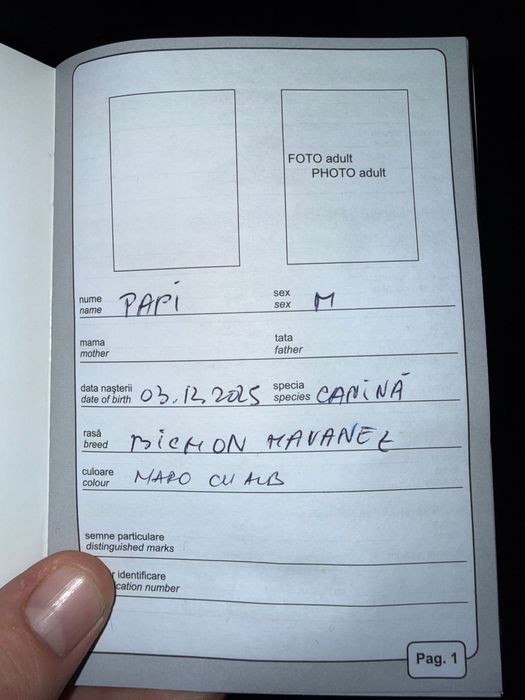 FOTO adult
PHOTO adult
nume PAPI sex M
name sex
mama tata
mother father
data nașterii 03.12.2025 specia CANINĂ
date of birth species
rasă BICHON HAVANEZ
breed
culoare MARO CU ALB
colour
semne particulare
distinguished marks
identificare
number
Pag. 1